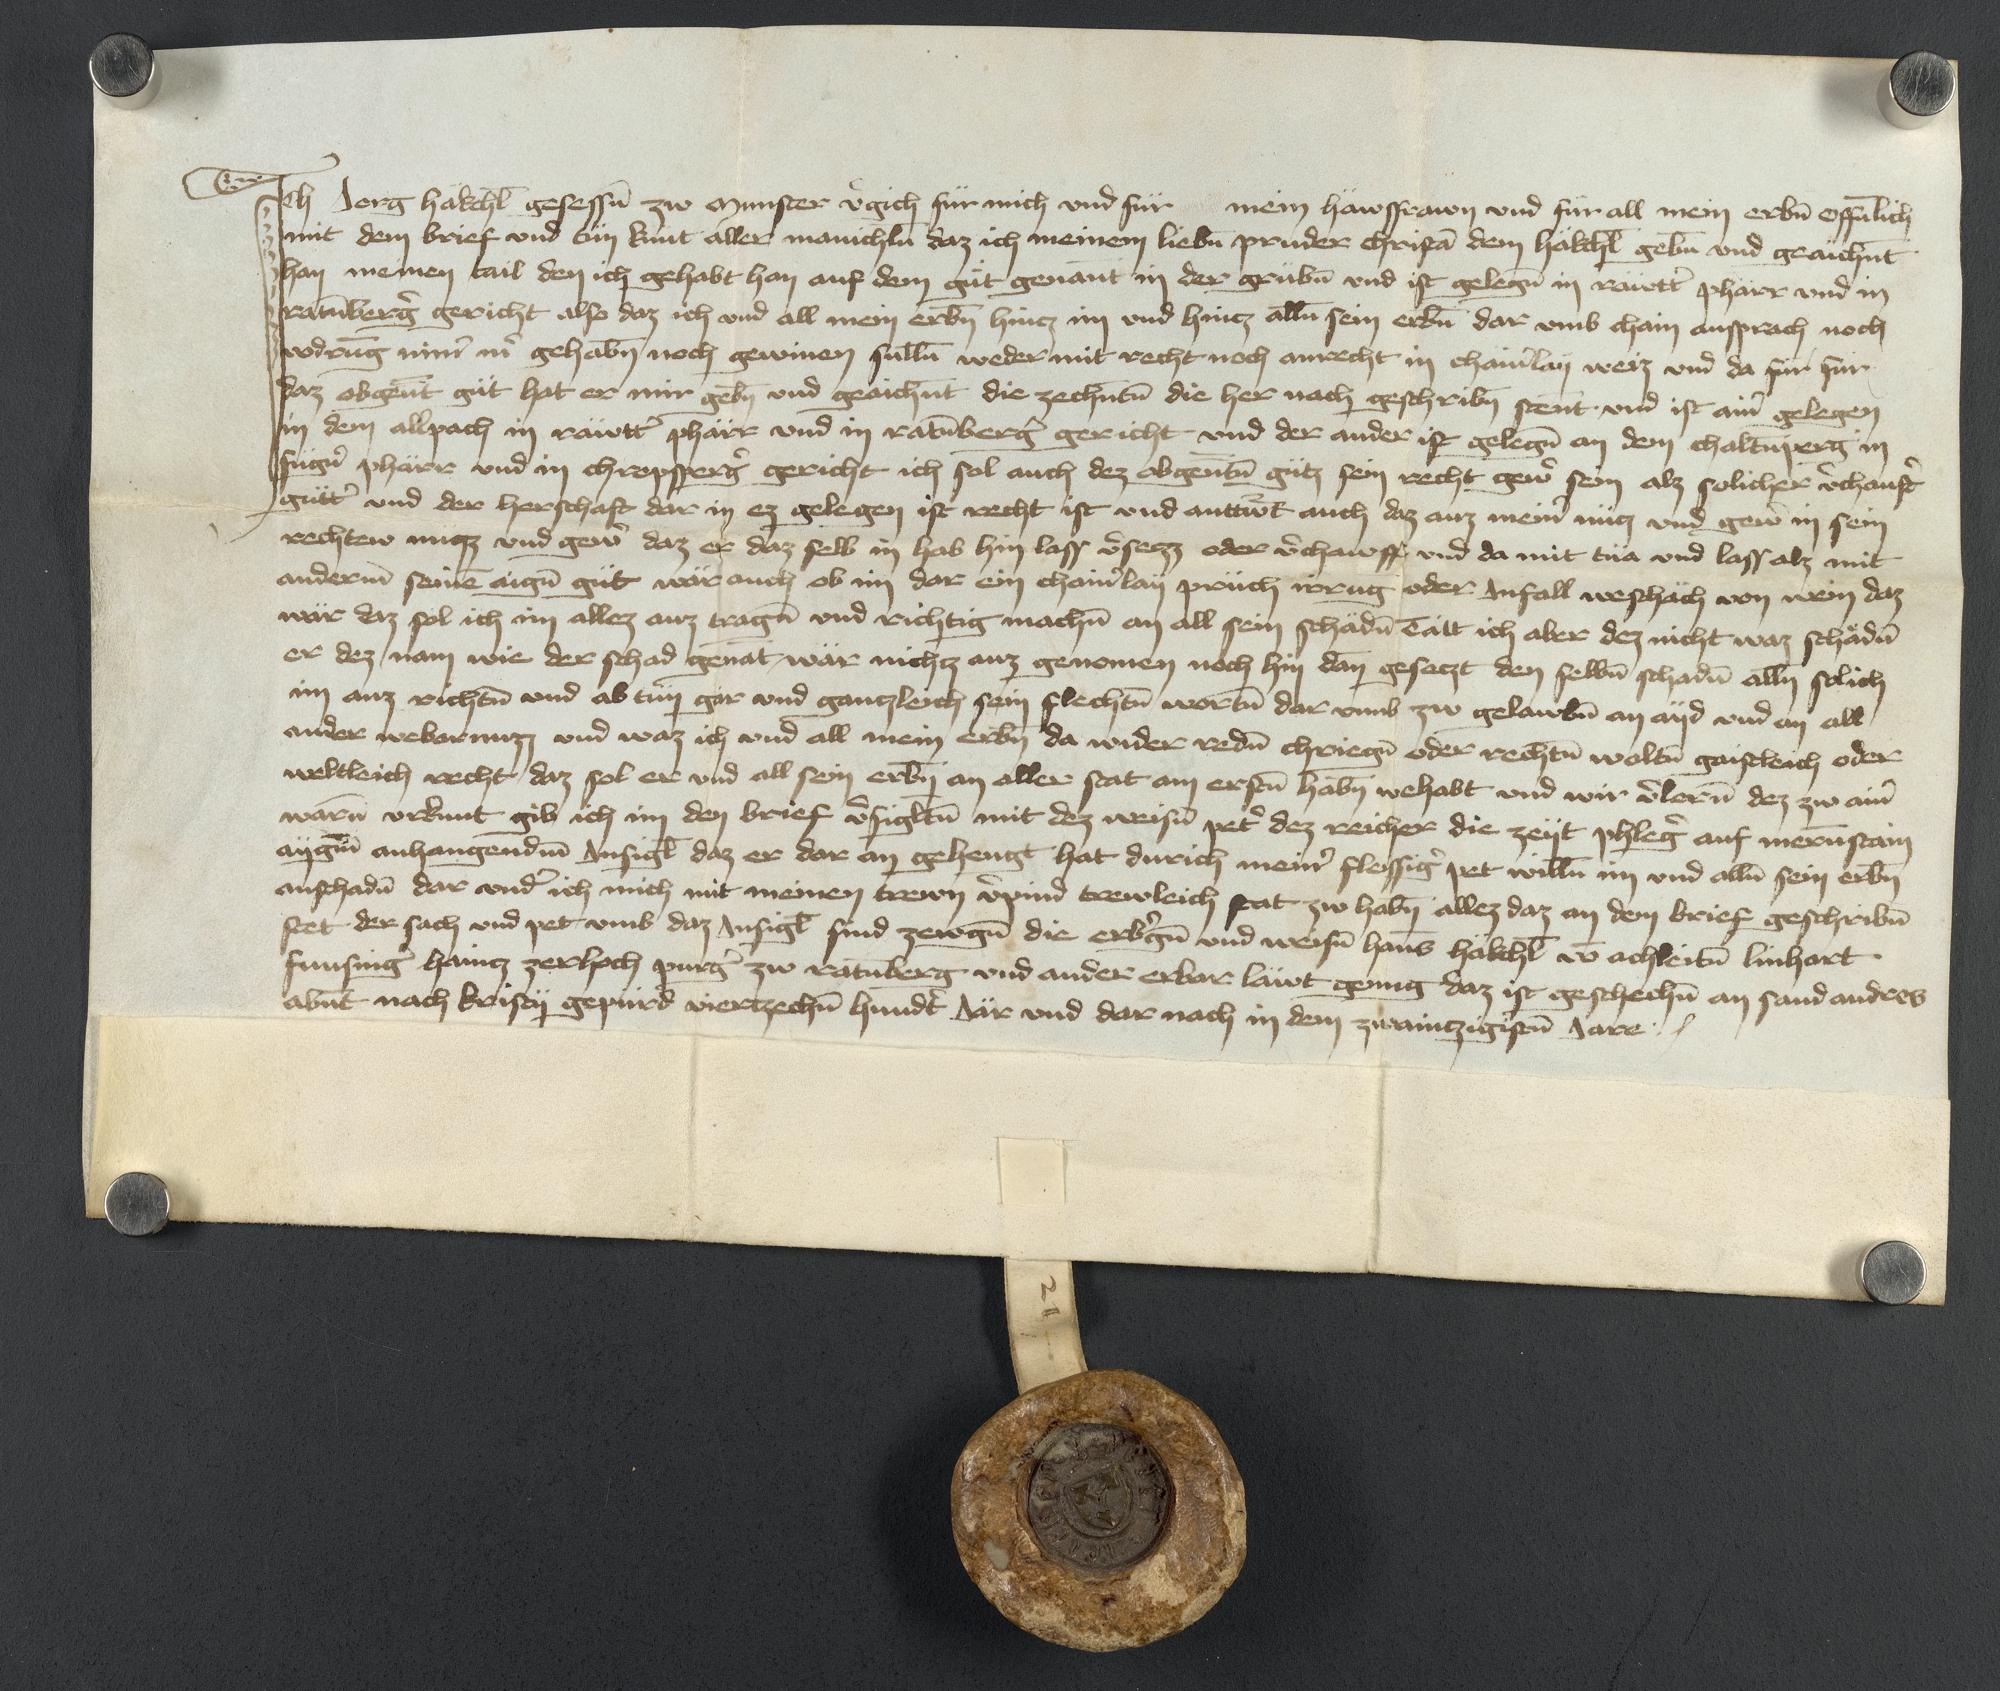 Ich Jorg häkchl̄ gesessn̄ zw Munster v̓gich für mich vnd für mein häwsfrawn vnd für all mein erbn̄ offn̄lich
mit dem brief vnd tün kunt aller manichln̄ daz ich meinem liebn̄ pruder christā dem häkchl̄ gebn̄ vnd geaichn̄t
han meinen tail den ich gehabt han auf dem güt genant in der grübn̄ vnd ist gelegn̄ in räwtt̓ pharr vnd in
ratn̄berg̓ gericht also daz ich vnd all mein erbn̄ hincz im vnd hincz alln̄ sein erbn̄ dar vmb chain ansprach noch
vodrūg nim̓ m̓ gehabn̄ noch gewinen sulln̄ weder mit recht noch anrecht in chain̓lay weiz vnd da für für
daz obgen̄t güt hat er mir gebn̄ vnd geaichn̄t die zechn̄tn̄ die her nach geschribn̄ stent vnd ist ain̓ gelegen
in dem allpach in räwtt̓ pharr vnd in ratn̄berg̓ gericht vnd der ander ist gelegn̄ an dem chaltn̄perg in
fügn̓ pharr vnd in chropfperg̓ gericht ich sol auch dez obgen̄tn̄ gütz sein recht gew̓ sein alz solicher v̓chauft̓
gütt̓ vnd der herschaft dar in ez gelegen ist recht ist vnd anttw̄t auch daz auz mein̓ nucz vnd gew̓ in sein
rechtew nucz vnd gew̓ daz er daz selb in hab hin lass v̓secz oder v̓chawff vnd da mit tüa vnd lass alz mit
anderm̄ seinē aign̄ güt wär auch ob im dar ein chain̓lay prüch irrug oder Anfall weschäch von wem daz
wär daz sol ich im allez auz tragn̄ vnd richtig machn̄ an all sein schadn̄ Tätt ich aber dez nicht waz schadn̄
er dez nam wie der schad genāt wär nichcz auz genomen noch hin dan gesaczt den selbn̄ schadn̄ alln̄ solich
im auz richtn̄ vnd ab tün gar vnd ganczleich sein slechtn̄ wortn̄ dar vmb zw gelawbn̄ an ayd vnd an all
ander webarnuzz vnd waz ich vnd all mein erbn̄ da wider redn̄ chriegn̄ oder rechtn̄ woltn̄ gaistleich oder
weltleich recht daz sol er vnd all sein erbn̄ an aller stat am erstn̄ habn̄ wehabt vnd wir v̓lern̄ dez zw ain̓
warn̄ vrkunt gib ich im den brief v̓sigltn̄ mit dez weisn̄ pet̓ dez reicher die zeyt phleg̓ auf mern̄stain
aygm̄ anhangendm̄ Insigl̄ daz er dar an gehengt hat durich mein̓ flessig̓ pet willn̄ im vnd alln̄ sein erbn̄
anschadn̄ dar vnd̓ ich mich mit meinen trewn v̓pind trewleich stat zw habn̄ allez daz an dem brief geschribn̄
stet der sach vnd pet vmb daz Insigl̄ sind zewgn̄ die erb̓gn̄ vnd weisn̄ hans häkchl̄ vō achleitn̄ linhart
funsing̓ haincz zerloch purg̓ zw ratn̄berg vnd ander erbar läwt genug daz ist geschechn̄ an sand andres
abn̄t nach kristy gepürd viertzechn̄ hund̓t Jär vnd dar nach in dem zwainczigistn̄ Jare
21